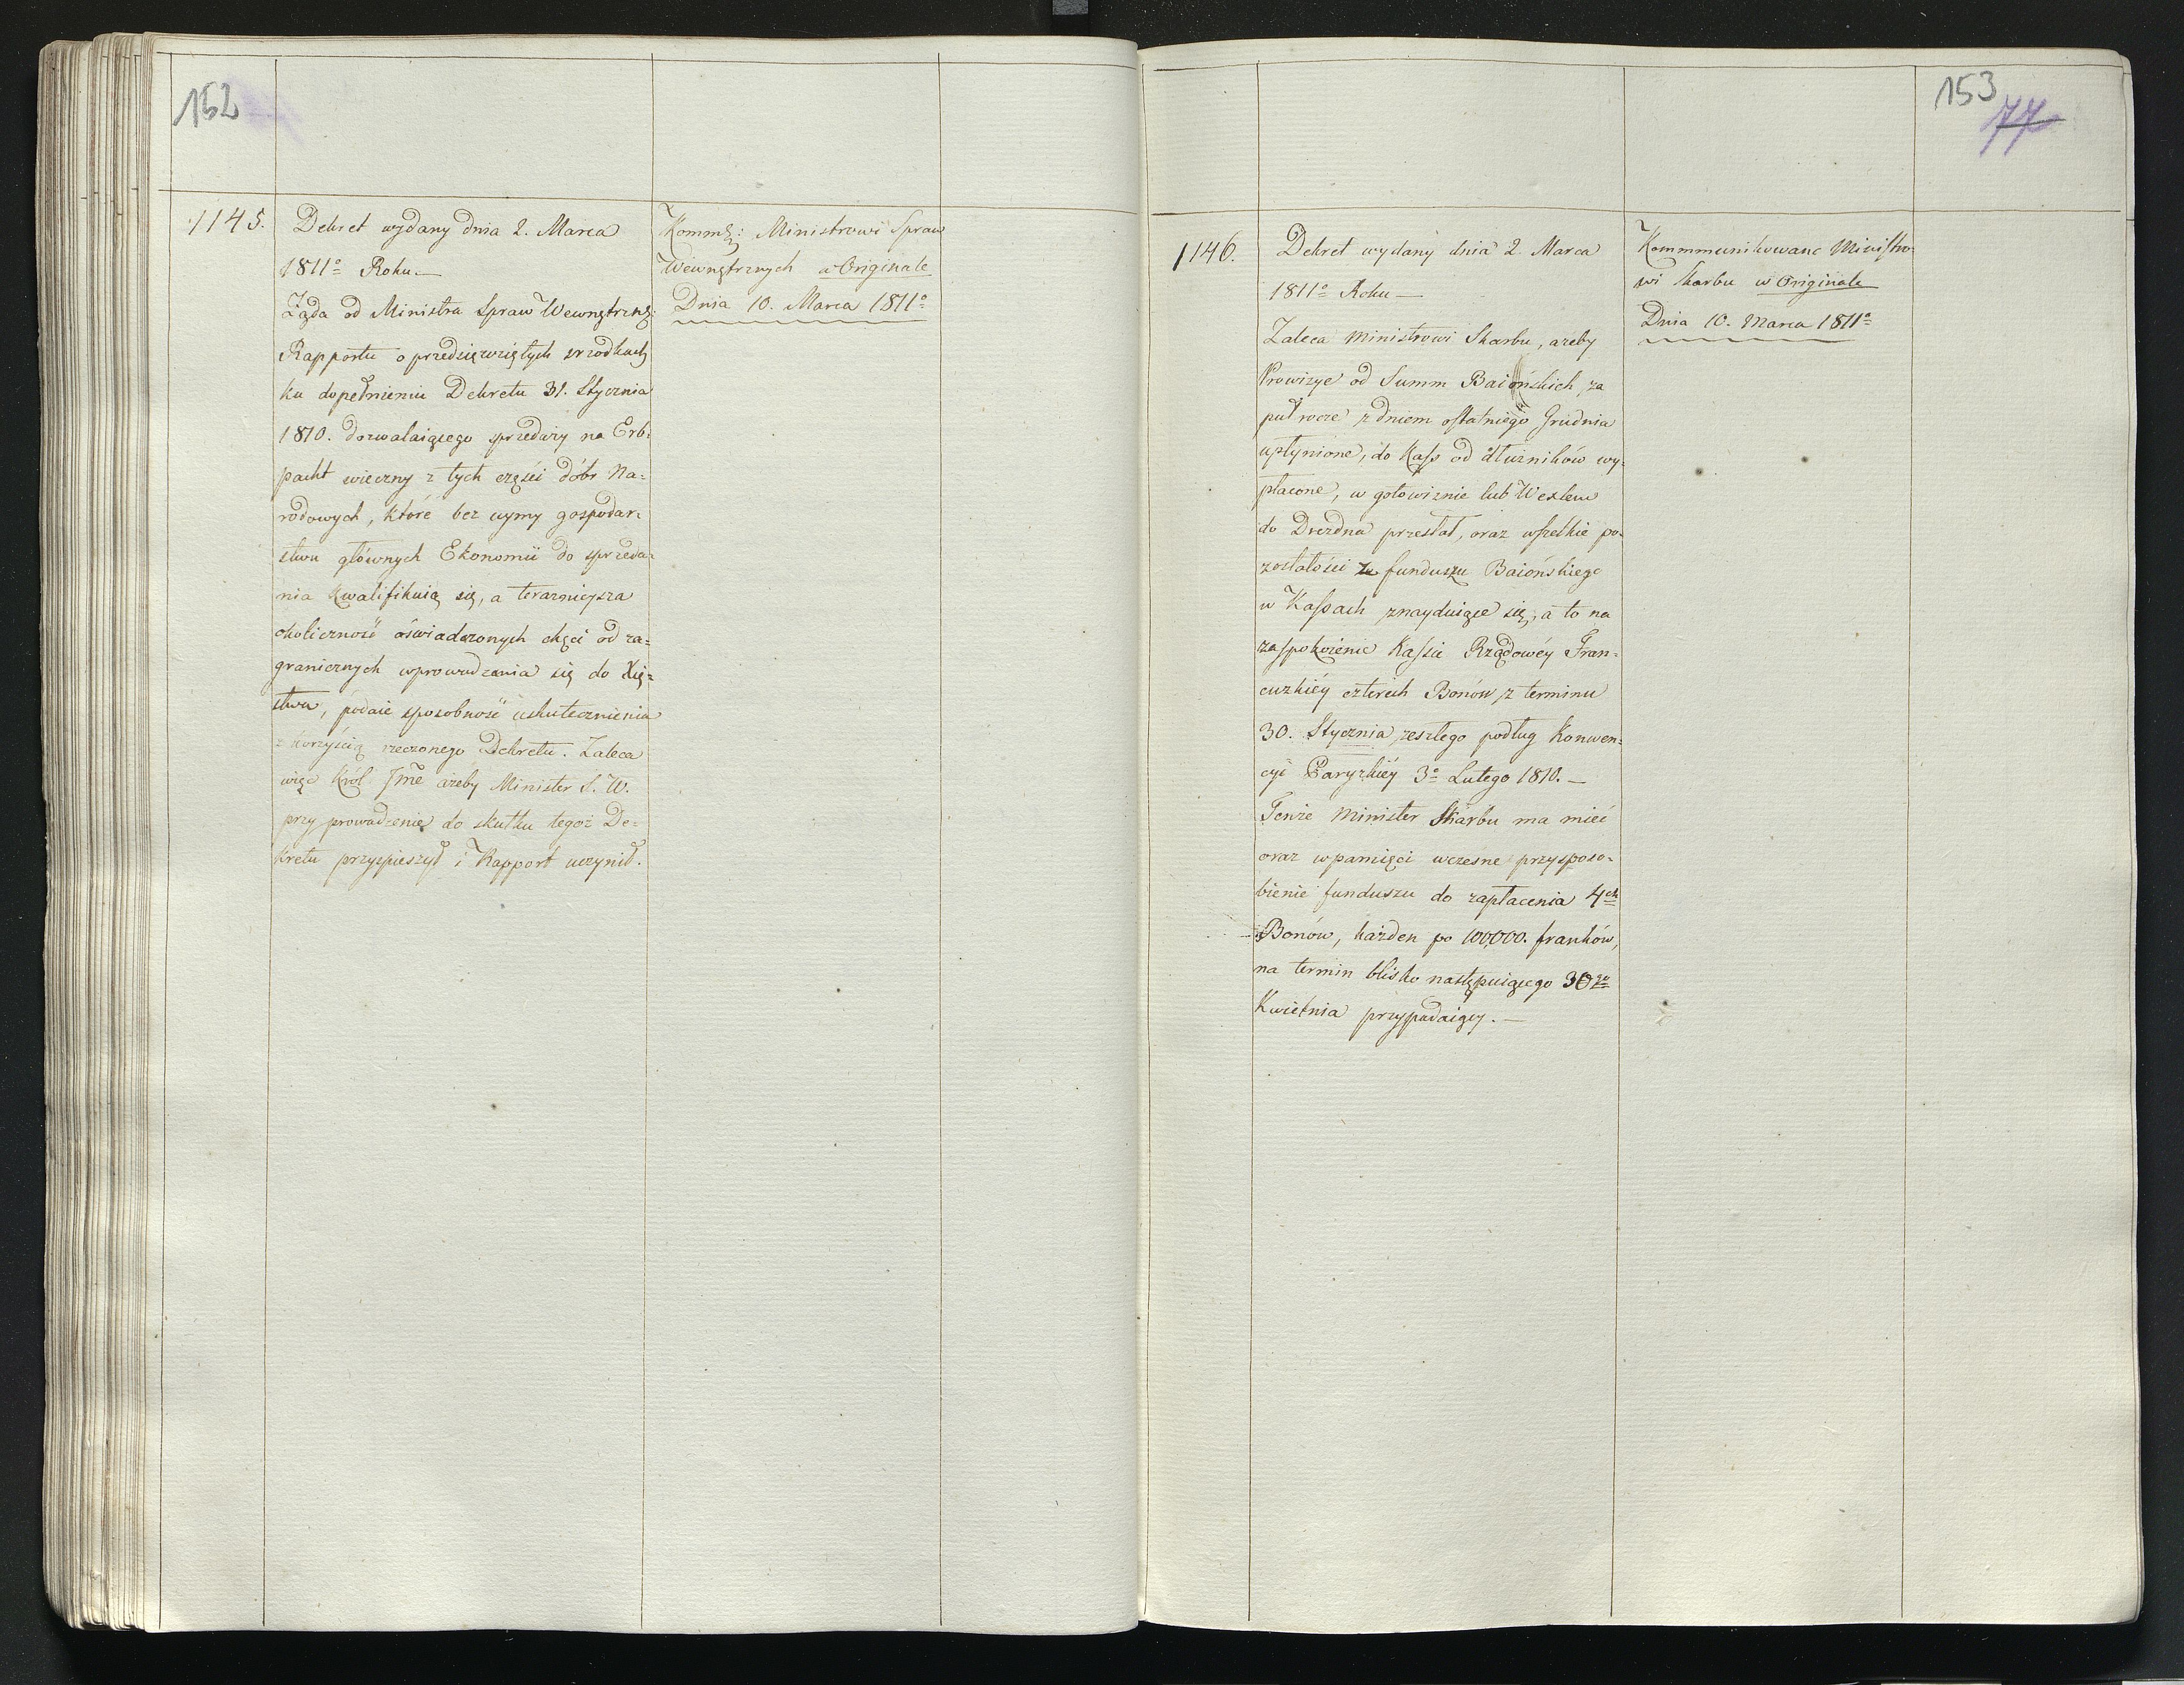 152
1145.
Dekret wydany dnia 2. Marca
1811º Roku.—
Żąda od Ministra Spraw Wewnętrzn:
Rapportu o przedsięwziętych srzodkach
ku dopełnieniu Dekretu 31. Stycznia
1810. dozwalaiącego sprzedaży na Erb-
pacht wieczny z tych części dóbr Na=
rodowych, które bez uymy gospodar=
stwa głównych Ekonomii do sprzeda=
nia kwalifikuią się, a teraznieysza
okoliczność oświadczonych chęci od za=
granicznych wprowadzania się do Xię=
stwa, podaie sposobność uskutecznienia
z korzyścią rzeczonego Dekretu. Zaleca
więc Król Jmć ażeby Minister S. W.
przyprowadzenie do skutku tegoż De=
kretu przyspieszył i Rapport uczynił.
Ministrowi Spraw
Wewnętrznych w Originale
Dnia 10. Marca 1811º
153
77
1146.
Dekret wydany dnia 2. Marca
1811º Roku —
Zaleca Ministrowi Skarbu, ażeby
Prowizye od Summ Baiońskich za
puł rocze z dniem ostatniego Grudnia
upłynione, do Kass od dłużników wy=
płacone, w gotowiznie lub Wexlem
do Drezdna przesłał, oraz wszelkie po=
zostałości z funduszu Baiońskiego
w Kassach znayduiące się, a to na
zaspokoienie Kassie Rządowéy Fran=
cuzkiéy czterech Bonów z terminu
30. Stycznia zeszłego podług Konwen=
cyi Paryzkiéy 3º Lutego 1810. —
Tenże Minister Skarbu ma mieć
oraz w pamięci wczesne przysposo=
bienie funduszu do zapłacenia 4ch
Bonów, każden po 100,000. franków,
na termin blisko następuiącego 30go
Kwietnia przypadaiący. —
Kommmunikowane Ministro=
wi Skarbu w Originale
Dnia 10. Marca 1811º